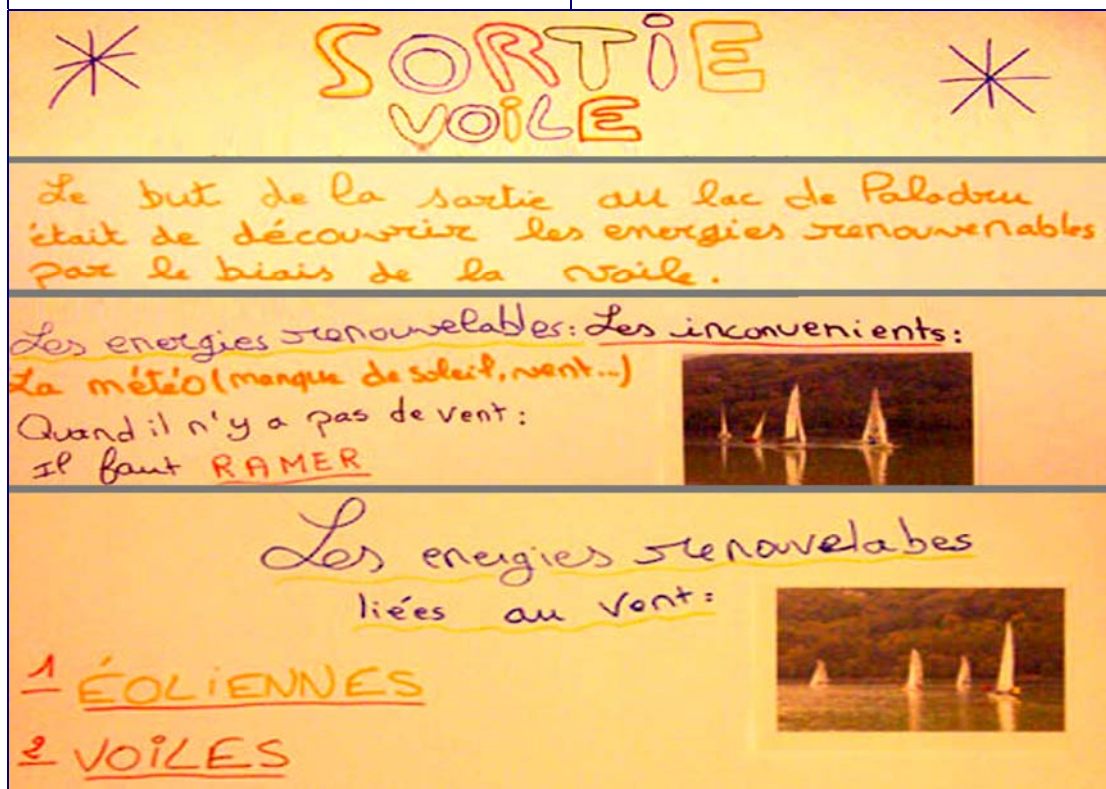 SORTiE
VOiLE
Le but de la sortie au lac de Paladru
était de découvrir les energies renouvenables
par le biais de la voile.
Les energies renouvelables: Les inconvenients:
La météo (manque de soleil, vent...)
Quand il n'y a pas de vent:
Il faut RAMER
Les energies renouvelabes
liées au Vent:
1 ÉOLiENNES
2 VOiLES